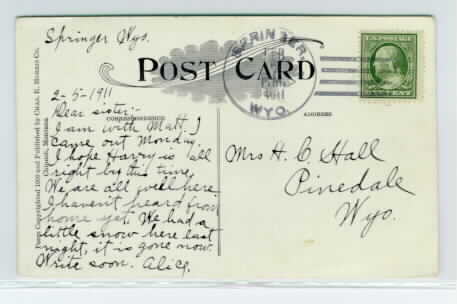 Springer Wyo.
POST CARD
SPRINGER
FEB
1911
WYO.
U.S. POSTAGE
2-5-1911
CORRESPONDENCE
ADDRESS
Dear sister:-
I am with Matt. I
came out Monday.
I hope Harry is all
right by this time.
We are all well here.
I haven't heard from
home yet. We had a
little snow here last
night, it is gone now.
Write soon. Alice.
Mrs H. C. Hall
Pinedale
Wyo.
Photo Copyrighted 1909 and Published by Chas. E. Morris Co.
Chinook, Montana